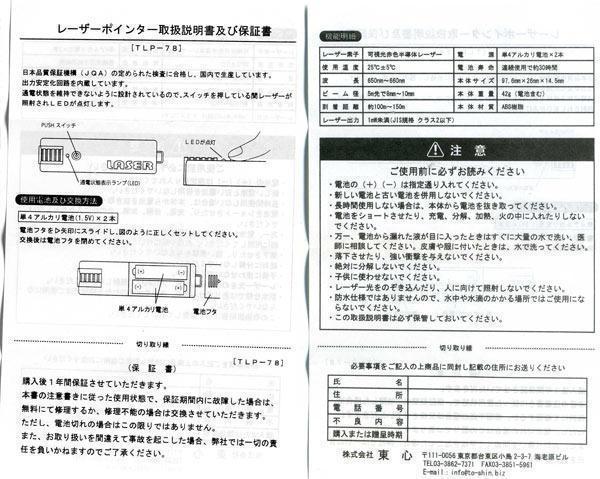 レーザーポインター取扱説明書及び保証書
[TLP-78]
日本品質保証機構(JQA)の定められた検査に合格し、国内で生産しています。
出力安定化回路を内蔵しています。
通電状態を維持できないように設計されているので、スイッチを押している間レーザーが
照射されLEDが点灯します。
PUSH スイッチ
LEDが点灯
LASER
通電状態表示ランプ(LED)
使用電池及び交換方法
単4アルカリ電池(1.5V)×2本
電池フタを矢印にスライドし、図のように正しくセットしてください。
交換後は電池フタを閉めてください。
単4アルカリ電池
電池フタ
切り取り線
[TLP-78]
(保 証 書)
購入後1年間保証させていただきます。
本書の注意書きに従った使用状態で、保証期間内に故障した場合は、
無料にて修理するか、修理不能の場合は交換させていただきます。
ただし、電池切れの場合はこの限りではありません。
また、お取り扱いを間違えて事故を起こした場合、弊社では一切の
責任を負いかねますのでご了承ください。
機能明細
レーザー素子 可視光赤色半導体レーザー 電源 単4アルカリ電池×2本
使用温度 25℃±5℃ 電池寿命 連続使用で約30時間
波長 650nm~660nm 本体サイズ 97.6mm×26mm×14.5mm
ビーム径 5m先で8mm~10mm 本体重量 42g(電池含む)
到着距離 約100m~150m 本体材質 ABS樹脂
レーザー出力 1mW未満(JIS規格 クラス2以下)
注意
ご使用前に必ずお読みください
・電池の(+)(-)は指定通り入れてください。
・新しい電池と古い電池を併用しないでください。
・長時間使用しない場合は、本体から電池を抜き取ってください。
・電池をショートさせたり、充電、分解、加熱、火の中に入れたりしない
でください。
・万一、電池から漏れた液が目に入ったときはすぐに大量の水で洗い、医
師に相談してください。皮膚や服に付いたときは、水で洗ってください。
・落下させたり、強い衝撃を与えないでください。
・絶対に分解しないでください。
・子供に使わせないでください。
・レーザー光をのぞき込んだり、人に向けて照射しないでください。
・防水仕様ではありませんので、水中や水滴のかかる場所ではご使用にな
らないでください。
・この取扱説明書は必ず保管しておいてください。
切り取り線
必要事項をご記入の上商品に同封し記載の住所にお送りください
氏名
住所
電話番号
不良内容
購入または贈呈時期
株式会社 東心 〒111-0056 東京都台東区小島2-3-7 海老原ビル
TEL03-3862-7371 FAX03-3851-5961
E-mail:info@to-shin.biz